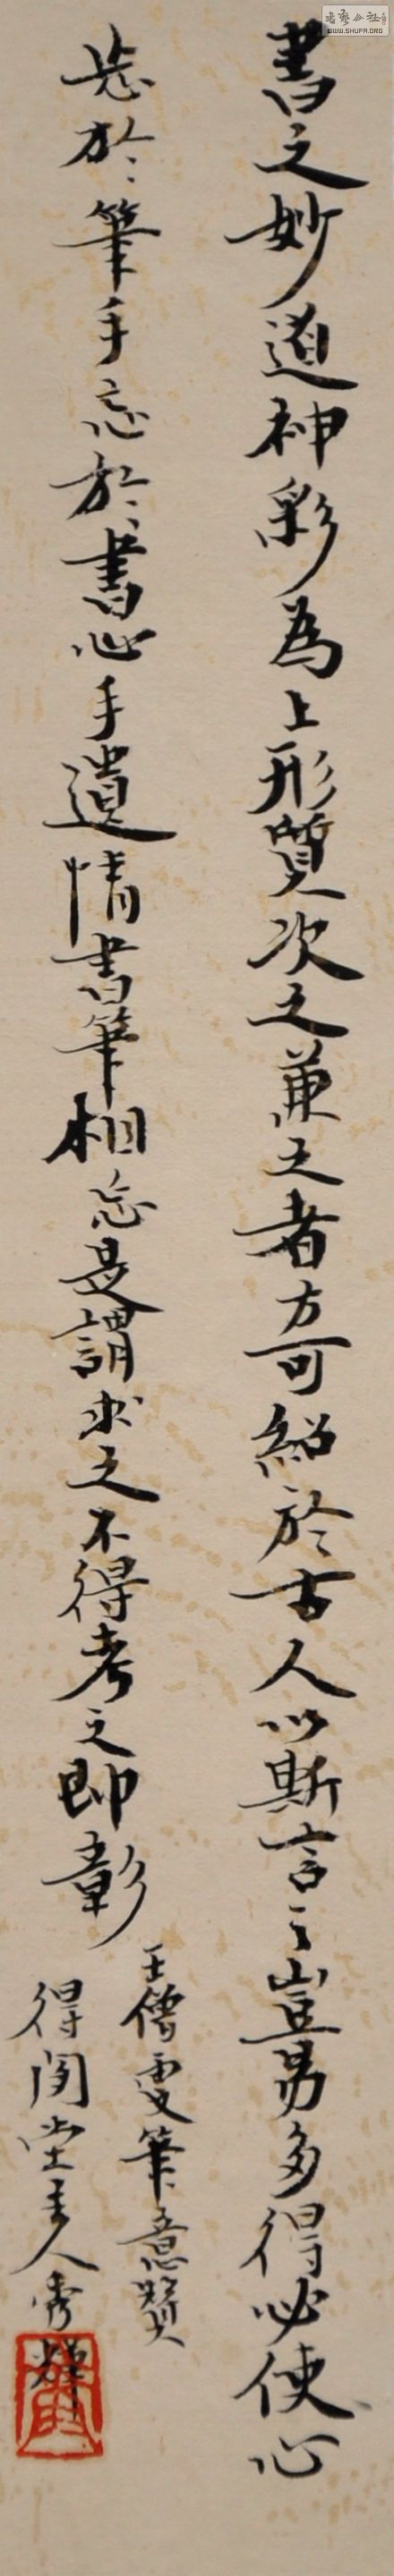 書之妙道神彩為上形質次之兼之者方可紹於古人以斯言之豈易多得必使心
忘於筆手忘於書心手遺情書筆相忘是謂求之不得考之即彰
王僧虔筆意贊
得閑堂主人秀輝
WWW.SHUFA.ORG